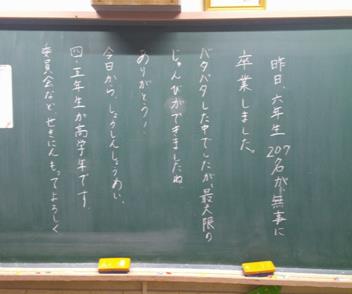 昨日、六年生207名が無事に
卒業しました。
バタバタした中でしたが、最大限の
じゅんびができましたね
ありがとう！
今日から、しょうしんしょうめい、
四・五年生が高学年です。
委員会など せきにんもってよろしく